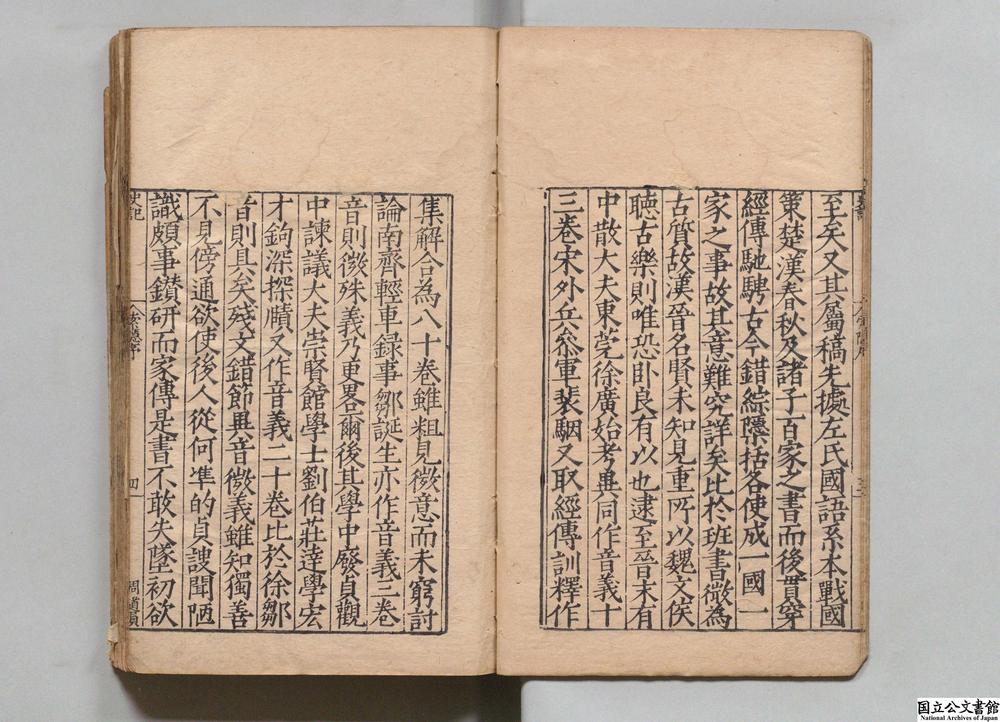 至矣又其屬稿先據左氏國語系本戰國
策楚漢春秋及諸子百家之書而後貫穿
經傳馳騁古今錯綜隱括各使成一國一
家之事故其意難究詳矣比於班書微為
古質故漢晉名賢未知見重所以魏文侯
聴古樂則唯恐卧良有以也逮至晉末有
中散大夫東莞徐廣始考異同作音義十
三巻宋外兵叅軍裴駰又取經傳訓釋作
集解合為八十巻雖粗見微意而未窮討
論南齊輕車録事鄒誕生亦作音義三巻
音則微殊義乃更畧爾後其學中廢貞觀
中諫議大夫崇賢館學士劉伯莊達學宏
才鉤深探賾又作音義二十巻比於徐鄒
音則具矣殘文錯節異音微義雖知獨善
不見傍通欲使後人從何準的貞謏聞陋
識頗事鑚研而家傳是書不敢失墜初欲
史記
索隱序
四
國立公文書館
National Archives of Japan